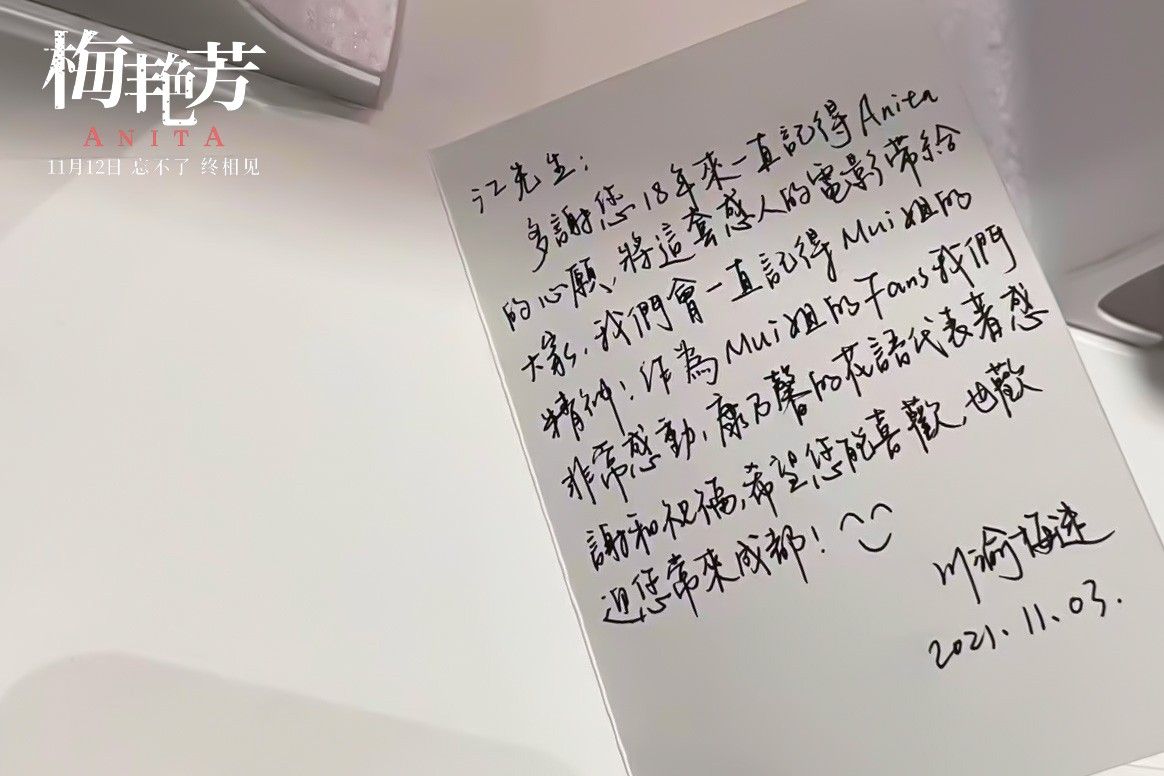 梅艳芳
ANITA
11月12日 忘不了 终相见
江先生：
多謝您18年來一直記得Anita
的心願、將這套感人的電影帶給
大家，我們會一直記得Mui姐的
精神！作為Mui姐的Fans我們
非常感動，康乃馨的花語代表着感
謝和祝福，希望您能喜歡，也歡
迎您常來成都！
川渝梅迷
2021.11.03.